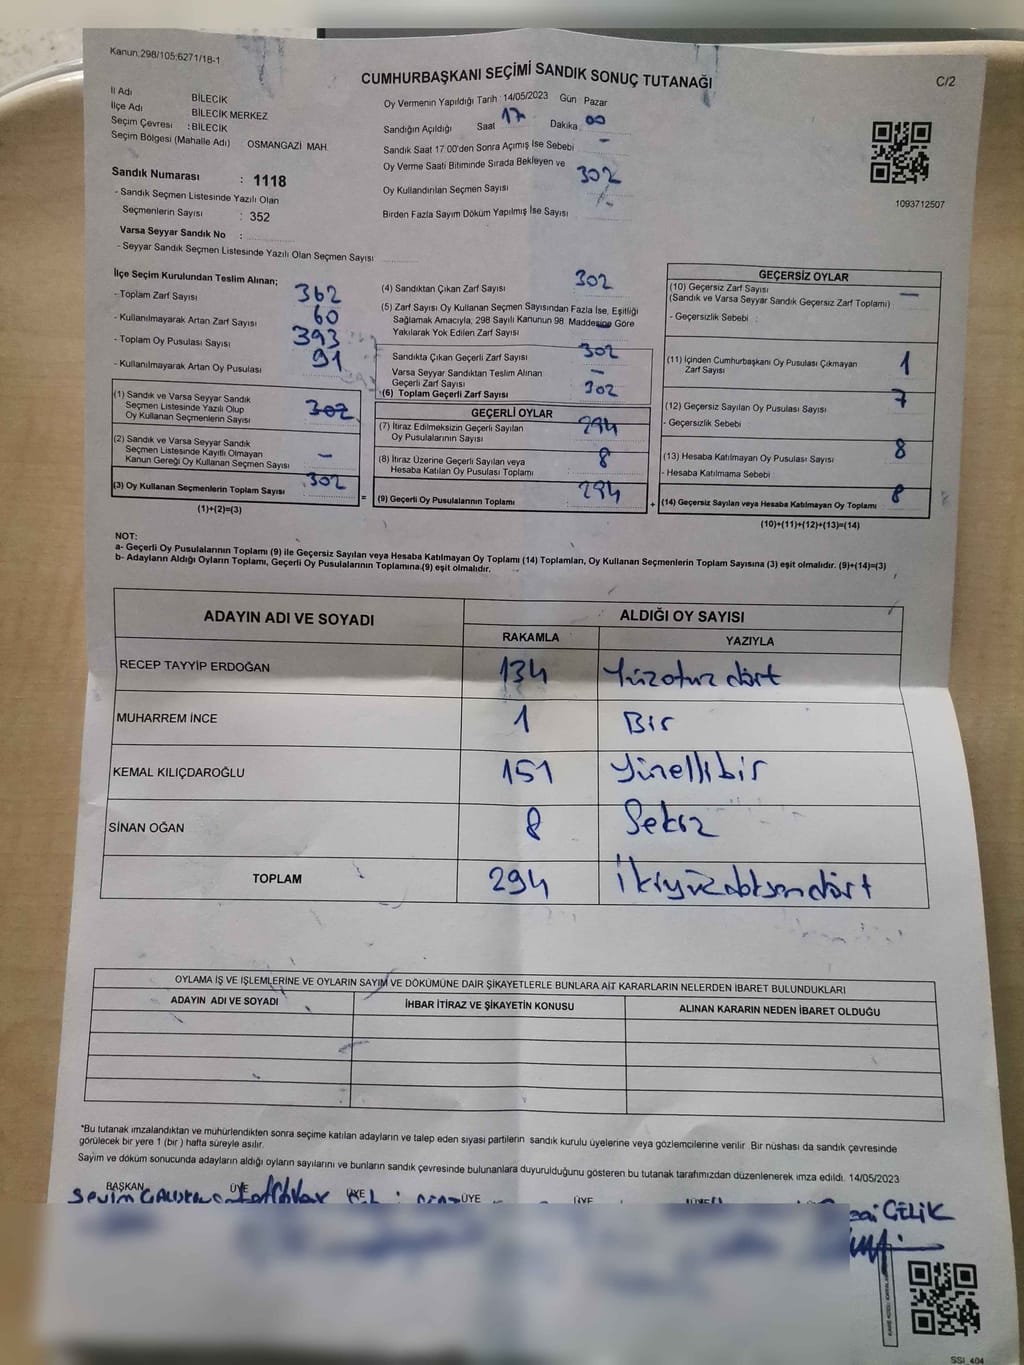 Kanun:298/105;6271/18-1
CUMHURBAŞKANI SEÇİMİ SANDIK SONUÇ TUTANAĞI
C/2
İl Adı BİLECİK
İlçe Adı BİLECİK MERKEZ
Seçim Çevresi : BİLECİK
Seçim Bölgesi (Mahalle Adı) OSMANGAZİ MAH.
Sandık Numarası : 1118
- Sandık Seçmen Listesinde Yazılı Olan
Seçmenlerin Sayısı : 352
Varsa Seyyar Sandık No :
- Seyyar Sandık Seçmen Listesinde Yazılı Olan Seçmen Sayısı
Oy Vermenin Yapıldığı Tarih : 14/05/2023 Gün Pazar
Sandığın Açıldığı Saat 17 Dakika 00
Sandık Saat 17:00'den Sonra Açımış İse Sebebi –
Oy Verme Saati Bitiminde Sırada Bekleyen ve
Oy Kullandırılan Seçmen Sayısı 302
Birden Fazla Sayım Döküm Yapılmış İse Sayısı
1093712507
İlçe Seçim Kurulundan Teslim Alınan;
- Toplam Zarf Sayısı 362
- Kullanılmayarak Artan Zarf Sayısı 60
- Toplam Oy Pusulası Sayısı 393
- Kullanılmayarak Artan Oy Pusulası 91
(1) Sandık ve Varsa Seyyar Sandık
Seçmen Listesinde Yazılı Olup
Oy Kullanan Seçmenlerin Sayısı 302
(2) Sandık ve Varsa Seyyar Sandık
Seçmen Listesinde Kayıtlı Olmayan
Kanun Gereği Oy Kullanan Seçmen Sayısı –
(3) Oy Kullanan Seçmenlerin Toplam Sayısı 302
(1)+(2)=(3)
(4) Sandıktan Çıkan Zarf Sayısı 302
(5) Zarf Sayısı Oy Kullanan Seçmen Sayısından Fazla İse, Eşitliği
Sağlamak Amacıyla, 298 Sayılı Kanunun 98. Maddesine Göre
Yakılarak Yok Edilen Zarf Sayısı –
Sandıkta Çıkan Geçerli Zarf Sayısı 302
Varsa Seyyar Sandıktan Teslim Alınan
Geçerli Zarf Sayısı –
(6) Toplam Geçerli Zarf Sayısı 302
GEÇERLİ OYLAR
(7) İtiraz Edilmeksizin Geçerli Sayılan
Oy Pusulalarının Sayısı 294
(8) İtiraz Üzerine Geçerli Sayılan veya
Hesaba Katılan Oy Pusulası Toplamı 8
= (9) Geçerli Oy Pusulalarının Toplamı 294
GEÇERSİZ OYLAR
(10) Geçersiz Zarf Sayısı –
(Sandık ve Varsa Seyyar Sandık Geçersiz Zarf Toplamı)
- Geçersizlik Sebebi :
(11) İçinden Cumhurbaşkanı Oy Pusulası Çıkmayan
Zarf Sayısı 1
(12) Geçersiz Sayılan Oy Pusulası Sayısı 7
- Geçersizlik Sebebi
(13) Hesaba Katılmayan Oy Pusulası Sayısı 8
- Hesaba Katılmama Sebebi :
+ (14) Geçersiz Sayılan veya Hesaba Katılmayan Oy Toplamı 8
(10)+(11)+(12)+(13)=(14)
NOT:
a- Geçerli Oy Pusulalarının Toplamı (9) ile Geçersiz Sayılan veya Hesaba Katılmayan Oy Toplamı (14) Toplamları, Oy Kullanan Seçmenlerin Toplam Sayısına (3) eşit olmalıdır. (9)+(14)=(3)
b- Adayların Aldığı Oyların Toplamı, Geçerli Oy Pusulalarının Toplamına (9) eşit olmalıdır.
ADAYIN ADI VE SOYADI ALDIĞI OY SAYISI
RAKAMLA YAZIYLA
RECEP TAYYİP ERDOĞAN 134 Yüzotuz dört
MUHARREM İNCE 1 Bir
KEMAL KILIÇDAROĞLU 151 Yüzellibir
SİNAN OĞAN 8 Sekiz
TOPLAM 294 İkiyüzdoksandört
OYLAMA İŞ VE İŞLEMLERİNE VE OYLARIN SAYIM VE DÖKÜMÜNE DAİR ŞİKAYETLERLE BUNLARA AİT KARARLARIN NELERDEN İBARET BULUNDUKLARI
ADAYIN ADI VE SOYADI İHBAR İTİRAZ VE ŞİKAYETİN KONUSU ALINAN KARARIN NEDEN İBARET OLDUĞU
*Bu tutanak imzalandıktan ve mühürlendikten sonra seçime katılan adayların ve talep eden siyasi partilerin sandık kurulu üyelerine veya gözlemcilerine verilir. Bir nüshası da sandık çevresinde
görülecek bir yere 1 (bir ) hafta süreyle asılır.
Sayım ve döküm sonucunda adayların aldığı oyların sayılarını ve bunların sandık çevresinde bulunanlara duyurulduğunu gösteren bu tutanak tarafımızdan düzenlenerek imza edildi. 14/05/2023
BAŞKAN ÜYE ÜYE ÜYE ÜYE
Sevim ÇELİK
SSI_404